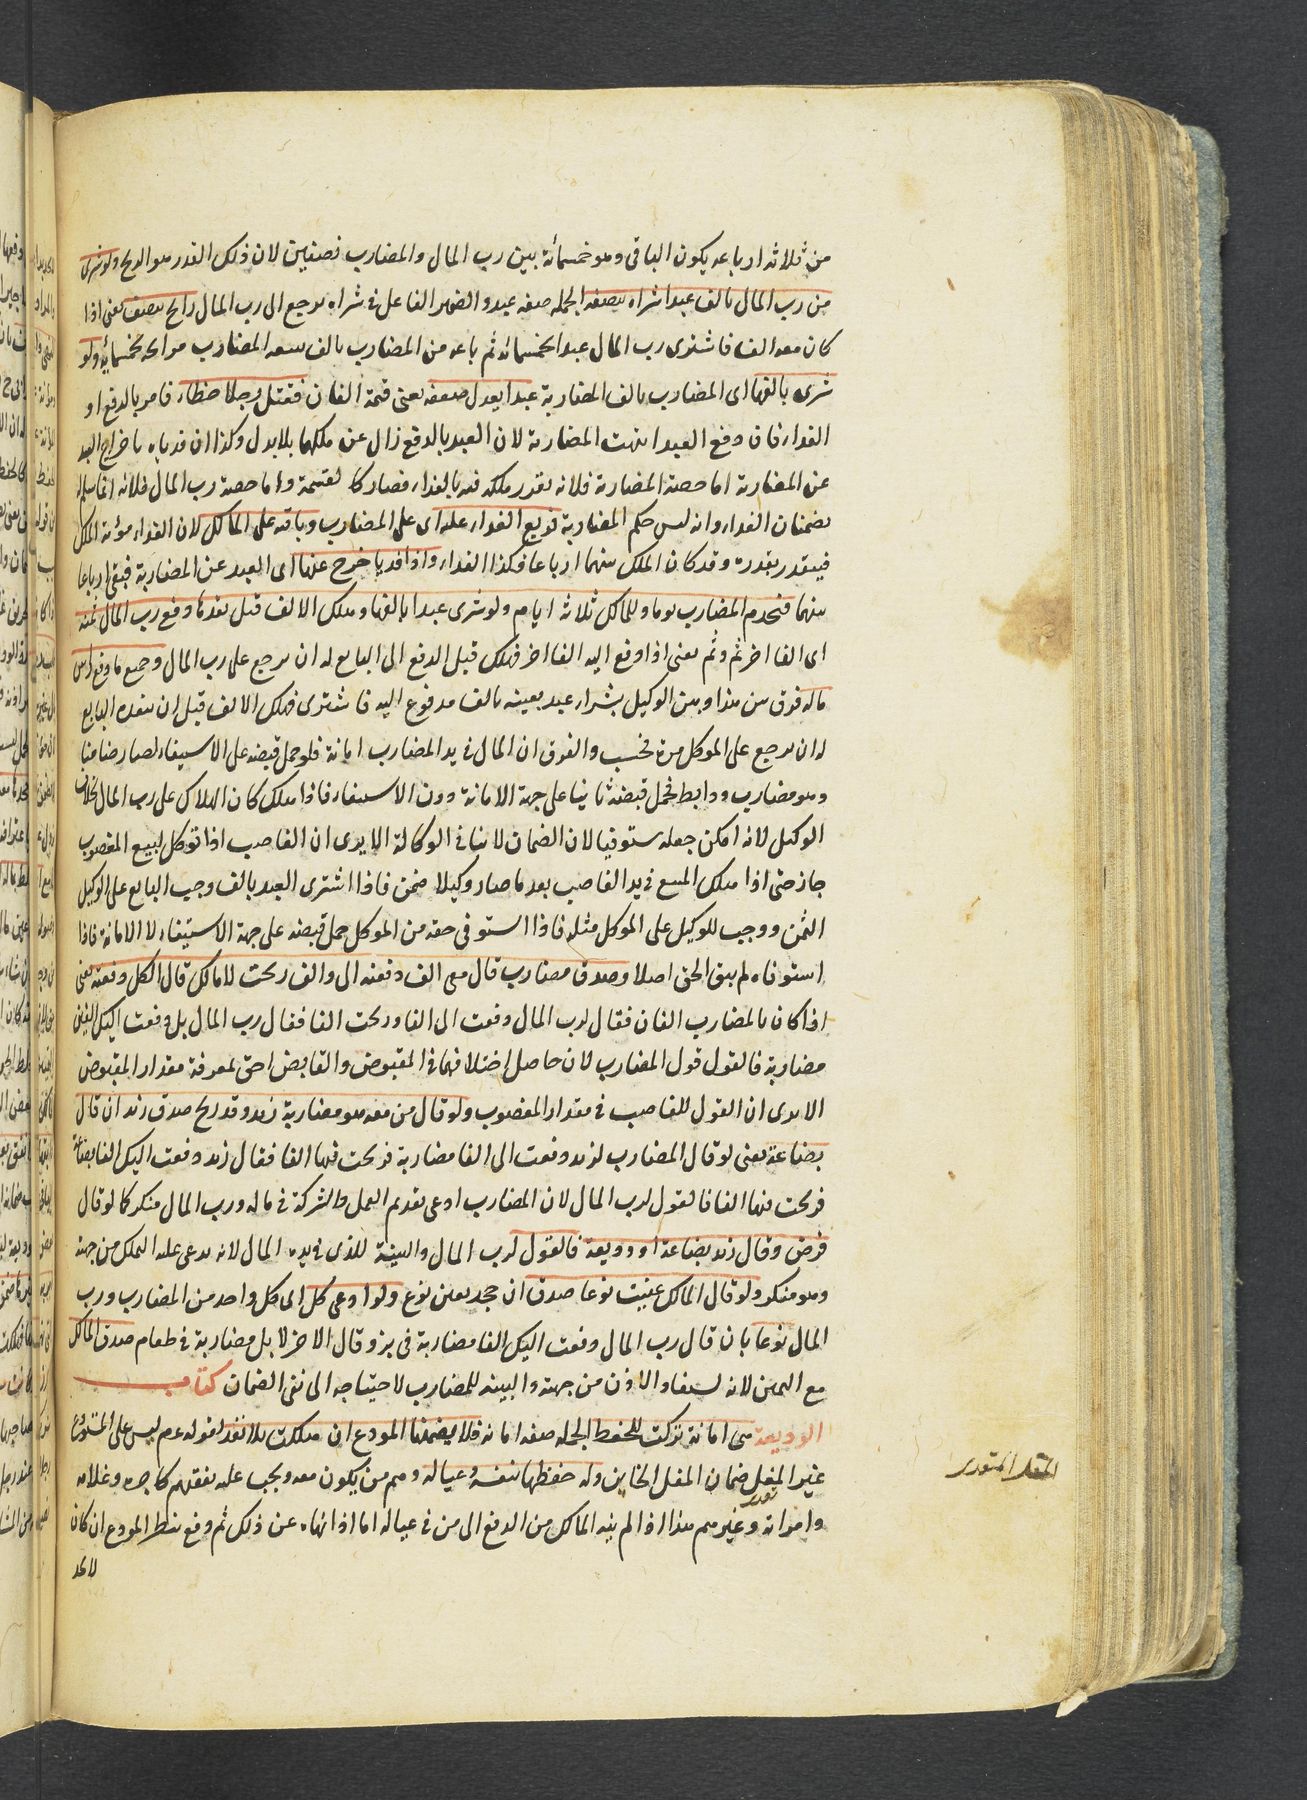 من ثلاثة ارباعه يكون الباقى وهو خمسمائة بين رب المال والمضارب نصفين لان ذلك القدر هو الربح ولو شرى
من رب المال بالف عبدا شراه بنصفه الجملة صفة عبد والضمير الفاعل فى شراه يرجع الى رب المال رابح بنصف يعنى اذا
كان معه الف فاشترى رب المال عبدا بخمسمائة ثم باعه من المضارب بالف يبيعه المضارب مرابحة بخمسمائة ولو
شرى بالفها اى المضارب بالف المضاربة عبدا يعدل ضعفه يعنى قيمته الفان فقتل رجلا خطاء فامر بالدفع او
الفداء فان دفع العبد انتهت المضاربة لان العبد بالدفع زال عن ملكهما بلا بدل وكذا ان فدياه باخراج العبد
عن المضاربة اما حصة المضاربة فلانه تقرر ملكه فيه بالفداء فصار كالقسمة واما حصة رب المال فلانه انما سلم له
بضمان الفداء وانه ليس حكم المضاربة فربع الفداء عليه اى على المضارب وباقيه على المالك لان الفداء مؤنة الملك
فيتقدر بقدره وقد كان الملك بينهما ارباعا فكذا الفداء واذا فديا خرج عنها اى العبد عن المضاربة فبقى ارباعا
بينهما فيخدم المضارب يوما وللمالك ثلاثة ايام ولو شرى عبدا بالفها وهلك الالف قبل نقدها دفع رب المال ثمنه
اى الفا اخر ثم وثم يعنى اذا دفع اليه الفا اخر فهلك قبل الدفع الى البايع له ان يرجع على رب المال وجميع ما دفع راس
ماله فرق بين هذا وبين الوكيل بشراء عبد بعينه بالف مدفوع اليه فاشترى فهلك الالف قبل ان ينقده البايع
له ان يرجع على الموكل مرة فحسب والفرق ان المال فى يد المضارب امانة فلو حمل قبضه على الاستيفاء لصار ضامنا
وهو مضارب ودايط فحمل قبضه ثانيا على جهة الامانة دون الاستيفاء فاذا هلك كان الهلاك على رب المال بخلاف
الوكيل لانه امكن جعله مستوفيا لان الضمان لا ينافى الوكالة الا يرى ان الغاصب اذا توكل لبيع المغصوب
جاز حتى اذا هلك المبيع فى يد الغاصب بعد ما صار وكيلا ضمن فاذا اشترى العبد بالف وجب للبايع على الوكيل
الثمن ووجب للوكيل على الموكل مثله فاذا استوفى حقه من الموكل حمل قبضه على جهة الاستيفاء لا الامانة فاذا
استوفاه لم يبق الحق اصلا وصدق مضارب قال معى الف دفعته الى والف ربحت لا مالك قال الكل دفعته يعنى
اذا كان بالمضارب الفان فقال لرب المال دفعت الى الفا وربحت الفا فقال رب المال بل دفعت اليك الفين
مضاربة فالقول قول المضارب لان حاصل اختلافهما فى المقبوض والقابض احق لمعرفة مقدار المقبوض
الا يرى ان القول للغاصب فى مقدار المغصوب ولو قال من معه هو مضاربة زيد وقد ربح صدق زيد ان قال
بضاعة يعنى لو قال المضارب لزيد دفعت الى الفا مضاربة فربحت فيها الفا فقال زيد دفعت اليك الفا بضاعة
فربحت فيها الفا فالقول لرب المال لان المضارب ادعى تقويم العمل والشركة فى ماله ورب المال منكر كما لو قال
قرض وقال زيد بضاعة او وديعة فالقول لرب المال والبينة للذى فى يده المال لانه يدعى عليه التملك من جهته
وهو منكر ولو قال المالك عينت نوعا صدق ان جحد يعنى نوع ولو ادعى كل اى كل واحد من المضارب ورب
المال نوعا بان قال رب المال دفعت اليك الفا مضاربة فى بز وقال الاخر لا بل مضاربة فى طعام صدق المالك
مع اليمين لانه يستفاد الاذن من جهته والبينة للمضارب لاحتياجه الى نفى الضمان كتاب
الوديعة هى امانة تركت للحفظ الجملة صفة امانة فلا يضمنها المودع ان هلكت بلا تعد لقوله عم ليس على المستودع
غير المغل ضمان المغل الخاين وله حفظها بنفسه وعياله وهم من يكون معه ويجب عليه نفقتهم كاجيره وغلامه
وامراته وغيرهم هذا اذا لم ينه المالك من الدفع الى من فى عياله اما اذا نهاه عن ذلك ثم دفع ينظر المودع ان كان